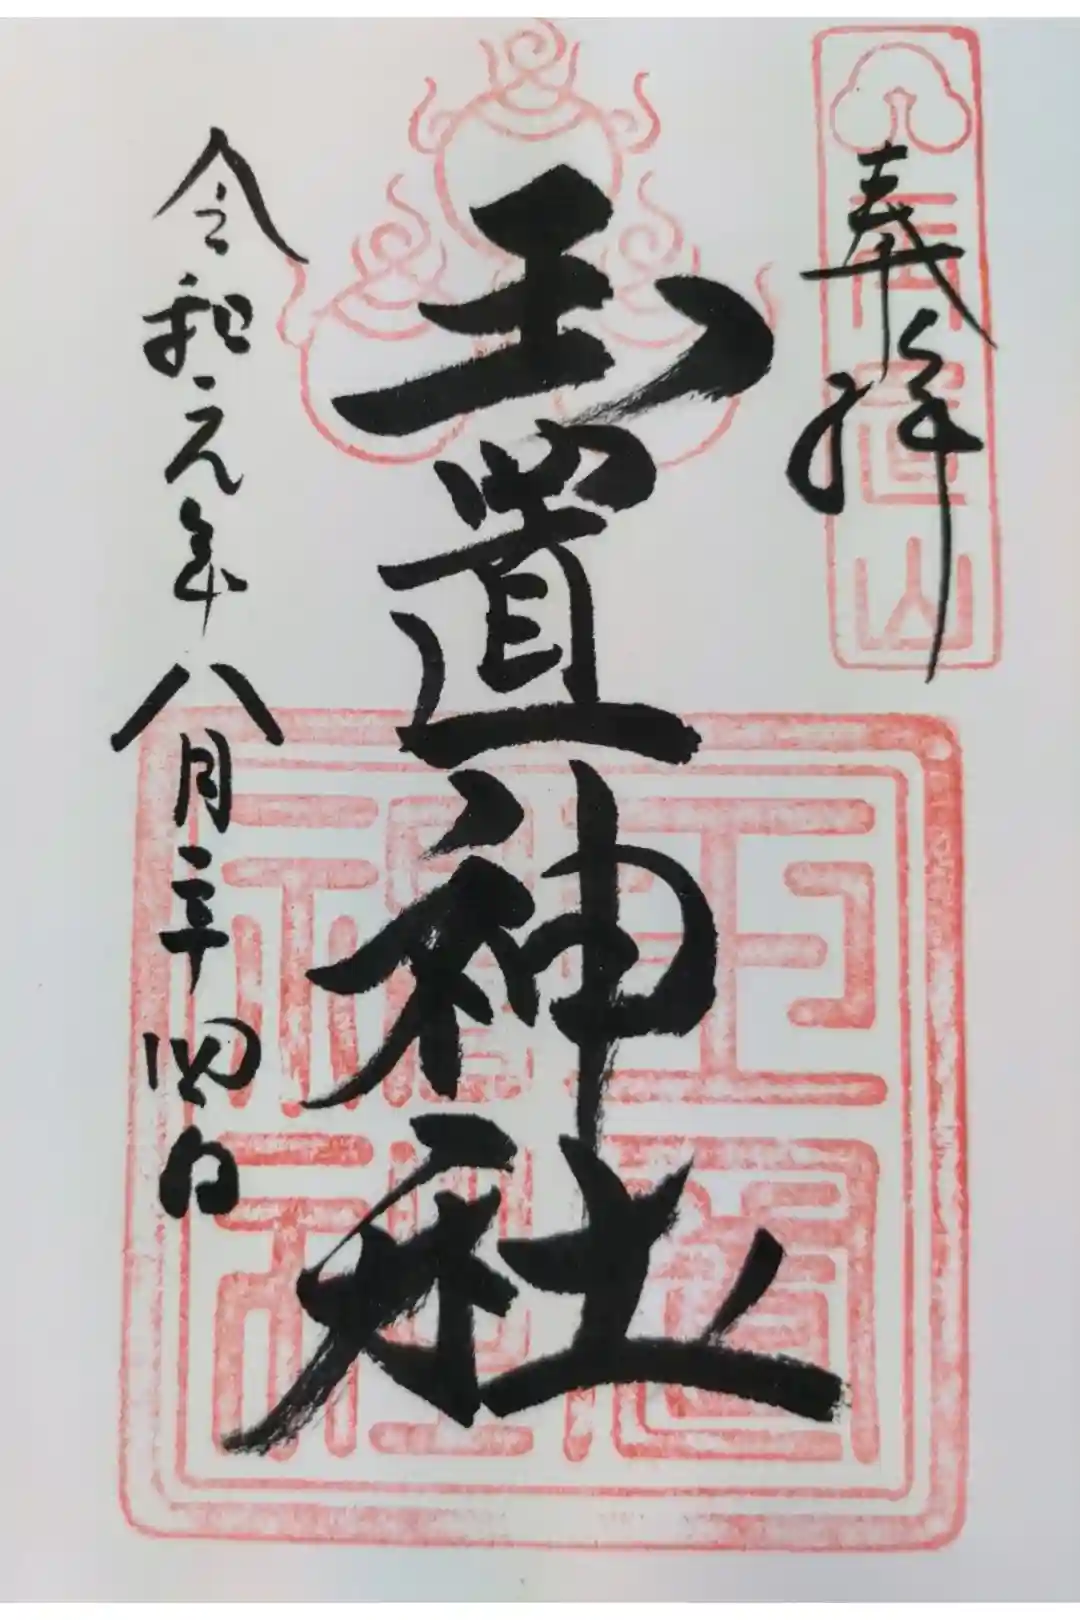 奉拝
玉置山
玉置神社
玉置
神社
令和元年八月二十四日